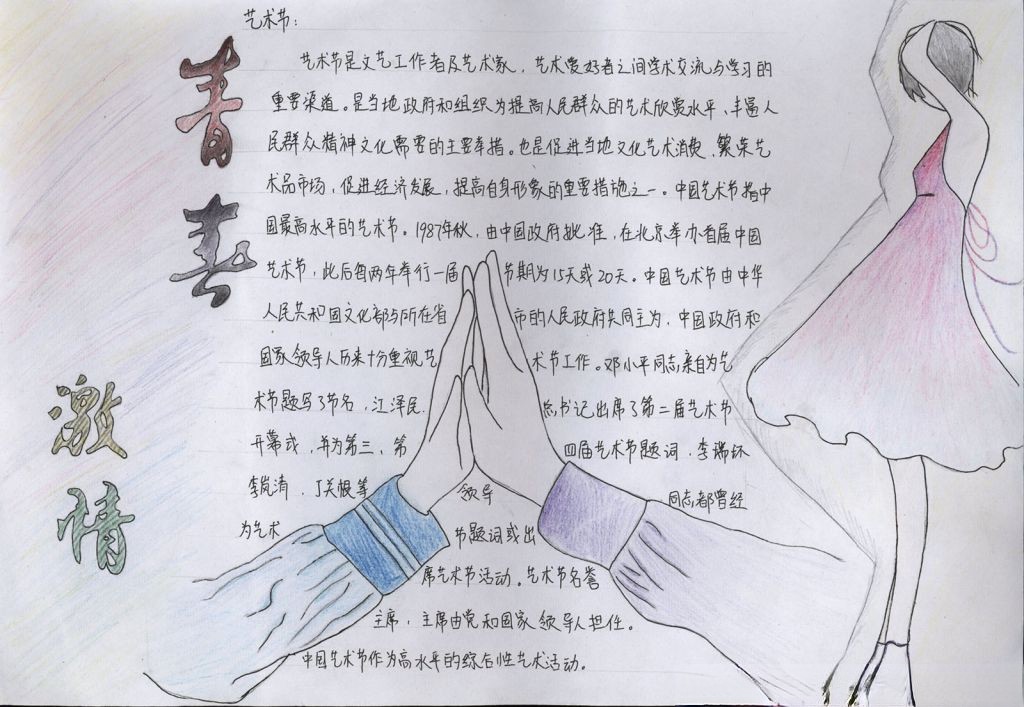 艺术节:
艺术节是文艺工作者及艺术家，艺术爱好者之间学术交流与学习的
重要渠道。是当地政府和组织为提高人民群众的艺术欣赏水平、丰富人
民群众精神文化需要的主要举措。也是促进当地文化艺术消费、繁荣艺
术品市场，促进经济发展，提高自身形象的重要措施之一。中国艺术节指中
国最高水平的艺术节。1987年秋，由中国政府批准，在北京举办首届中国
艺术节，此后每两年举行一届 节期为15天或20天。中国艺术节由中华
人民共和国文化部与所在省 市的人民政府共同主为，中国政府和
国家领导人历来十分重视艺 术节工作。邓小平同志亲自为艺
术节题写了节名，江泽民 总书记出席了第二届艺术节
开幕式，并为第三、第 四届艺术节题词，李瑞环
李岚清，丁关根等 领导 同志都曾经
为艺术 节题词或出
席艺术节活动。艺术节名誉
主席，主席由党和国家领导人担任。
中国艺术节作为高水平的综合性艺术活动。
青春
激情